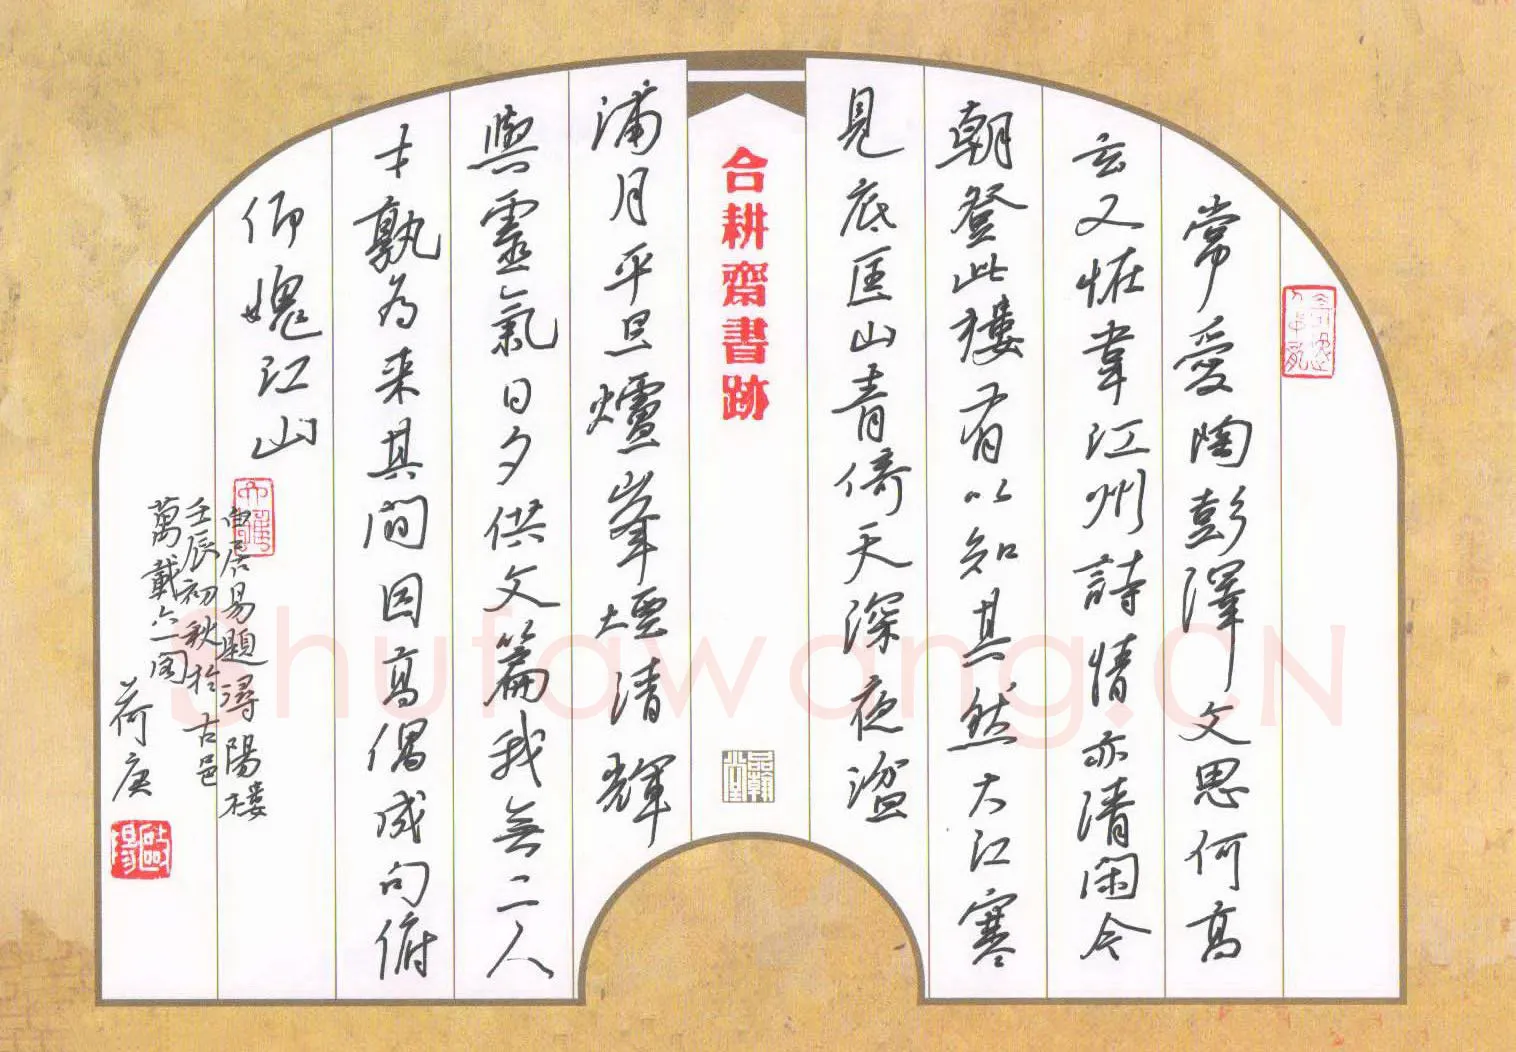 常愛陶彭澤文思何高
玄又怪韋江州詩情亦清閑今
朝登此樓有以知其然大江寒
見底匡山青倚天深夜湓
合耕齋書跡
品翰堂
浦月平旦爐峯煙清輝
與靈氣日夕供文篇我無二人
才孰為来其間因高偶成句俯
仰媿江山
白居易題潯陽樓
壬辰初秋於古邑
萬載
荷庚
Shufawang.CN